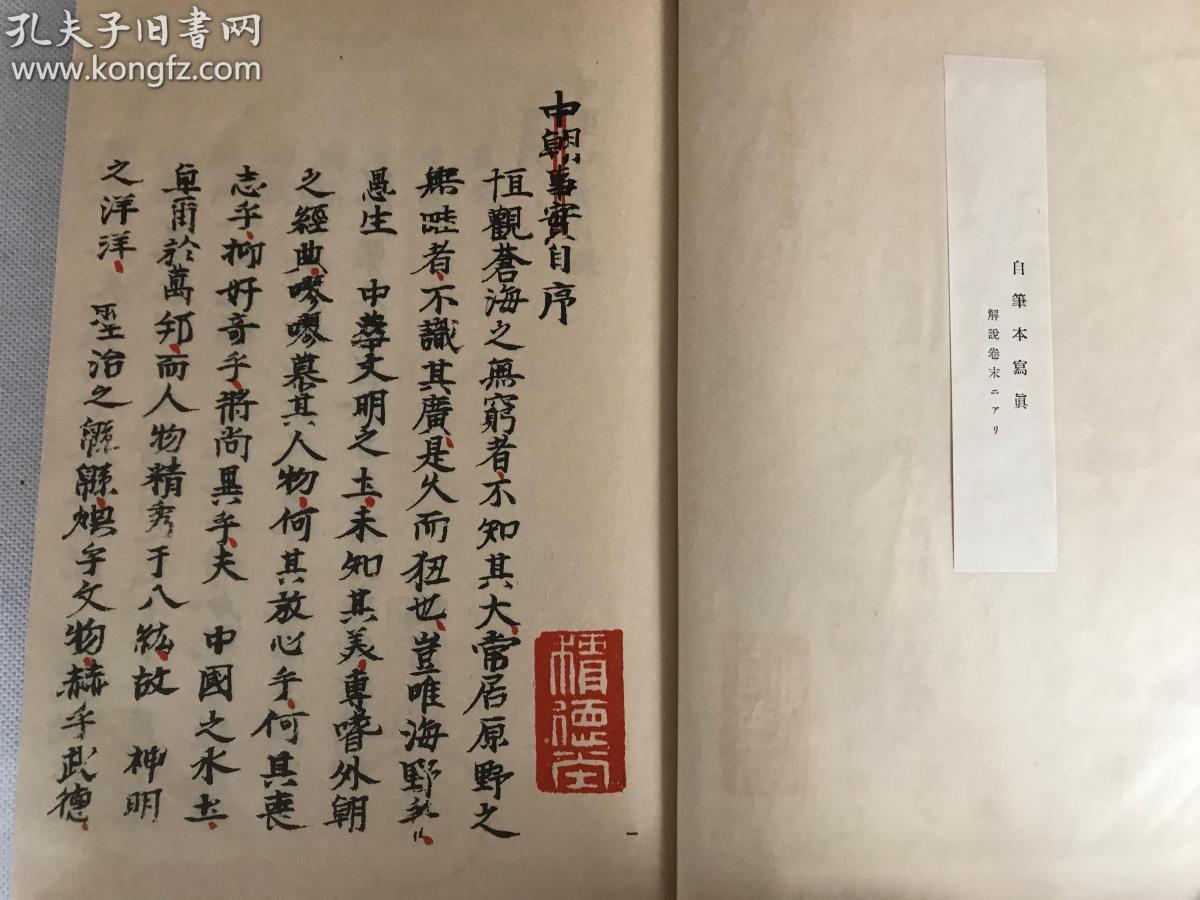 孔夫子旧书网
www.kongfz.com
自筆本寫眞
解說卷末ニアリ
中朝事實自序
恒觀蒼海之無窮者不知其大常居原野之
無畦者不識其廣是久而狃也豈唯海野乎
愚生 中華文明之土未知其美專嗜外朝
之經典嘐嘐慕其人物何其放心乎何其喪
志乎抑好奇乎將尚異乎夫 中國之水土
卓爾於萬邦而人物精秀于八紘故 神明
之洋洋 聖治之緜緜煥乎文物赫乎武德
積德堂
一